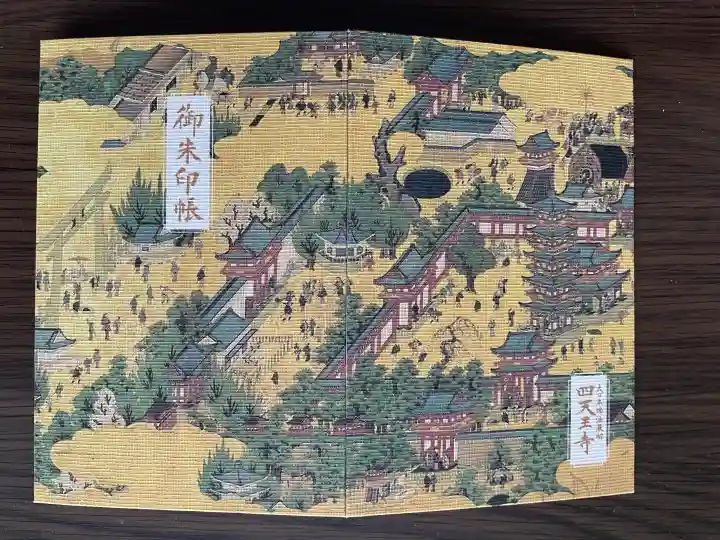 御朱印帳
四天王寺